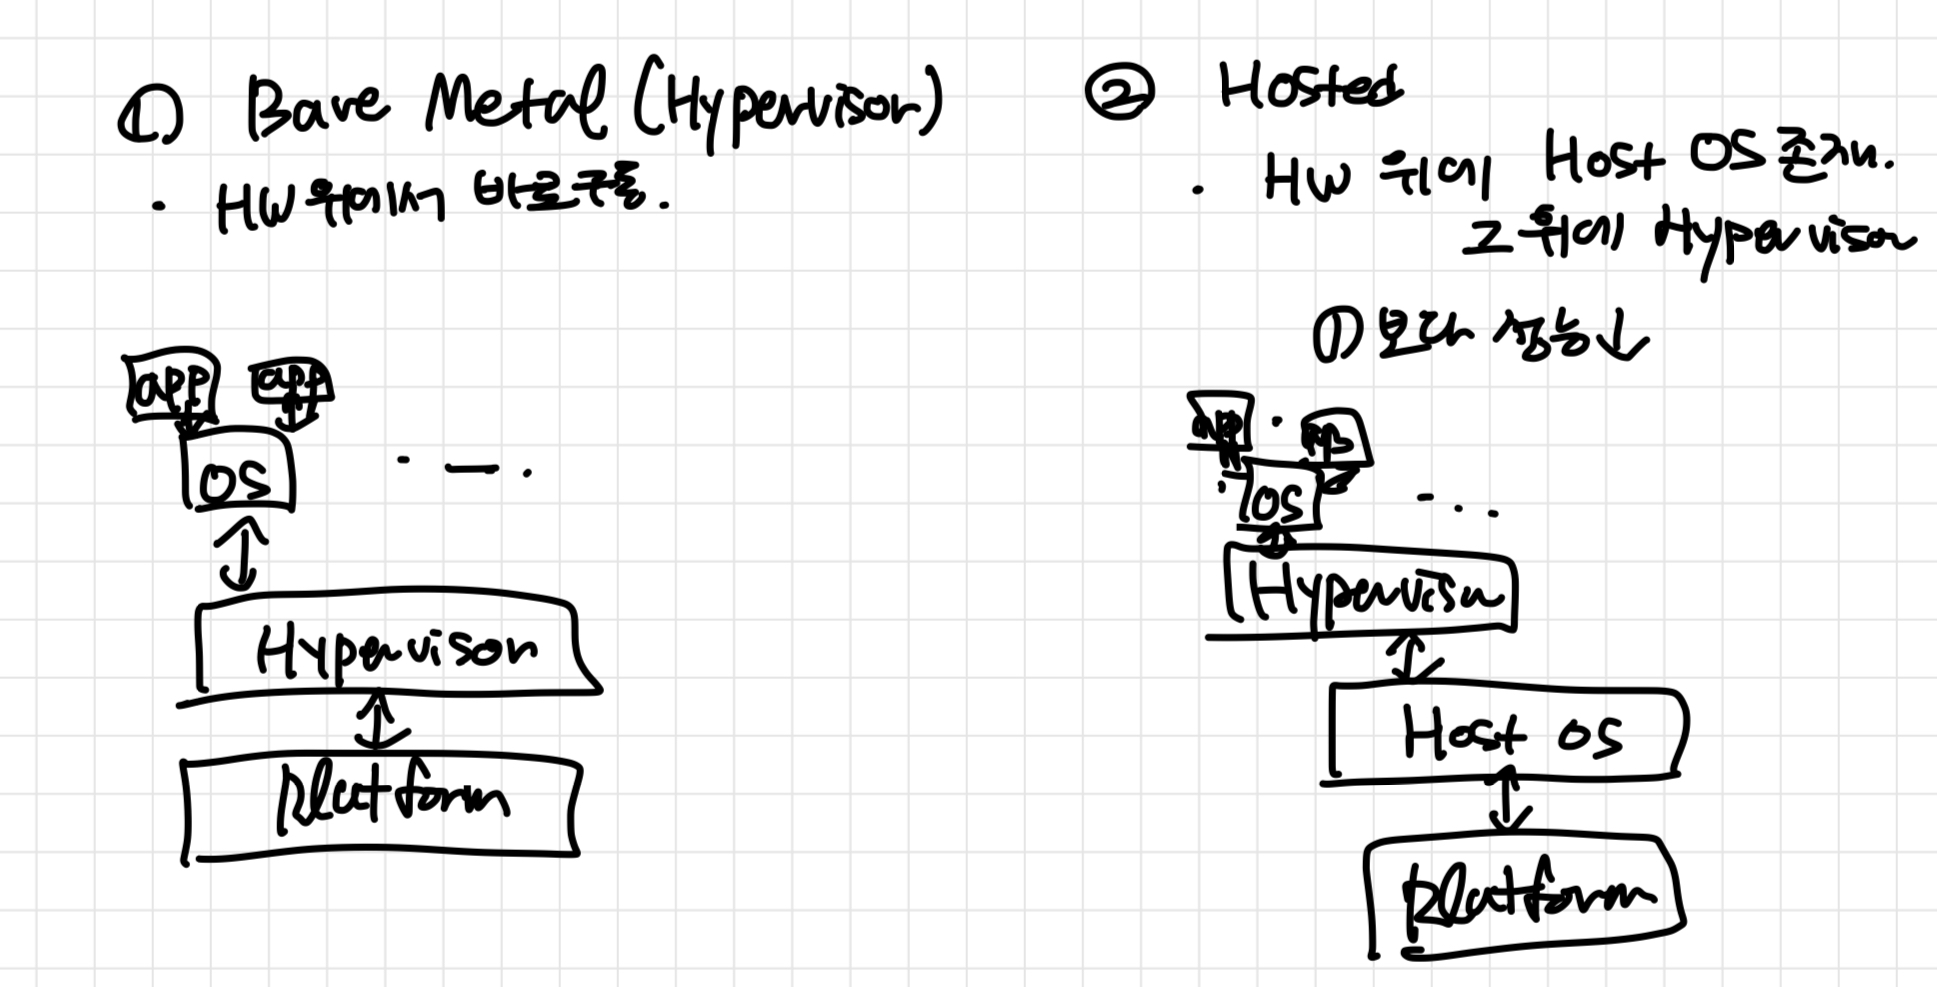 ① Bare Metal (Hypervisor)
· HW 위에서 바로구동.
app app
OS
Hypervisor
platform
② Hosted
· HW 위에 Host OS 존재.
그 위에 Hypervisor
①보다 성능↓
app app
OS
Hypervisor
Host OS
platform